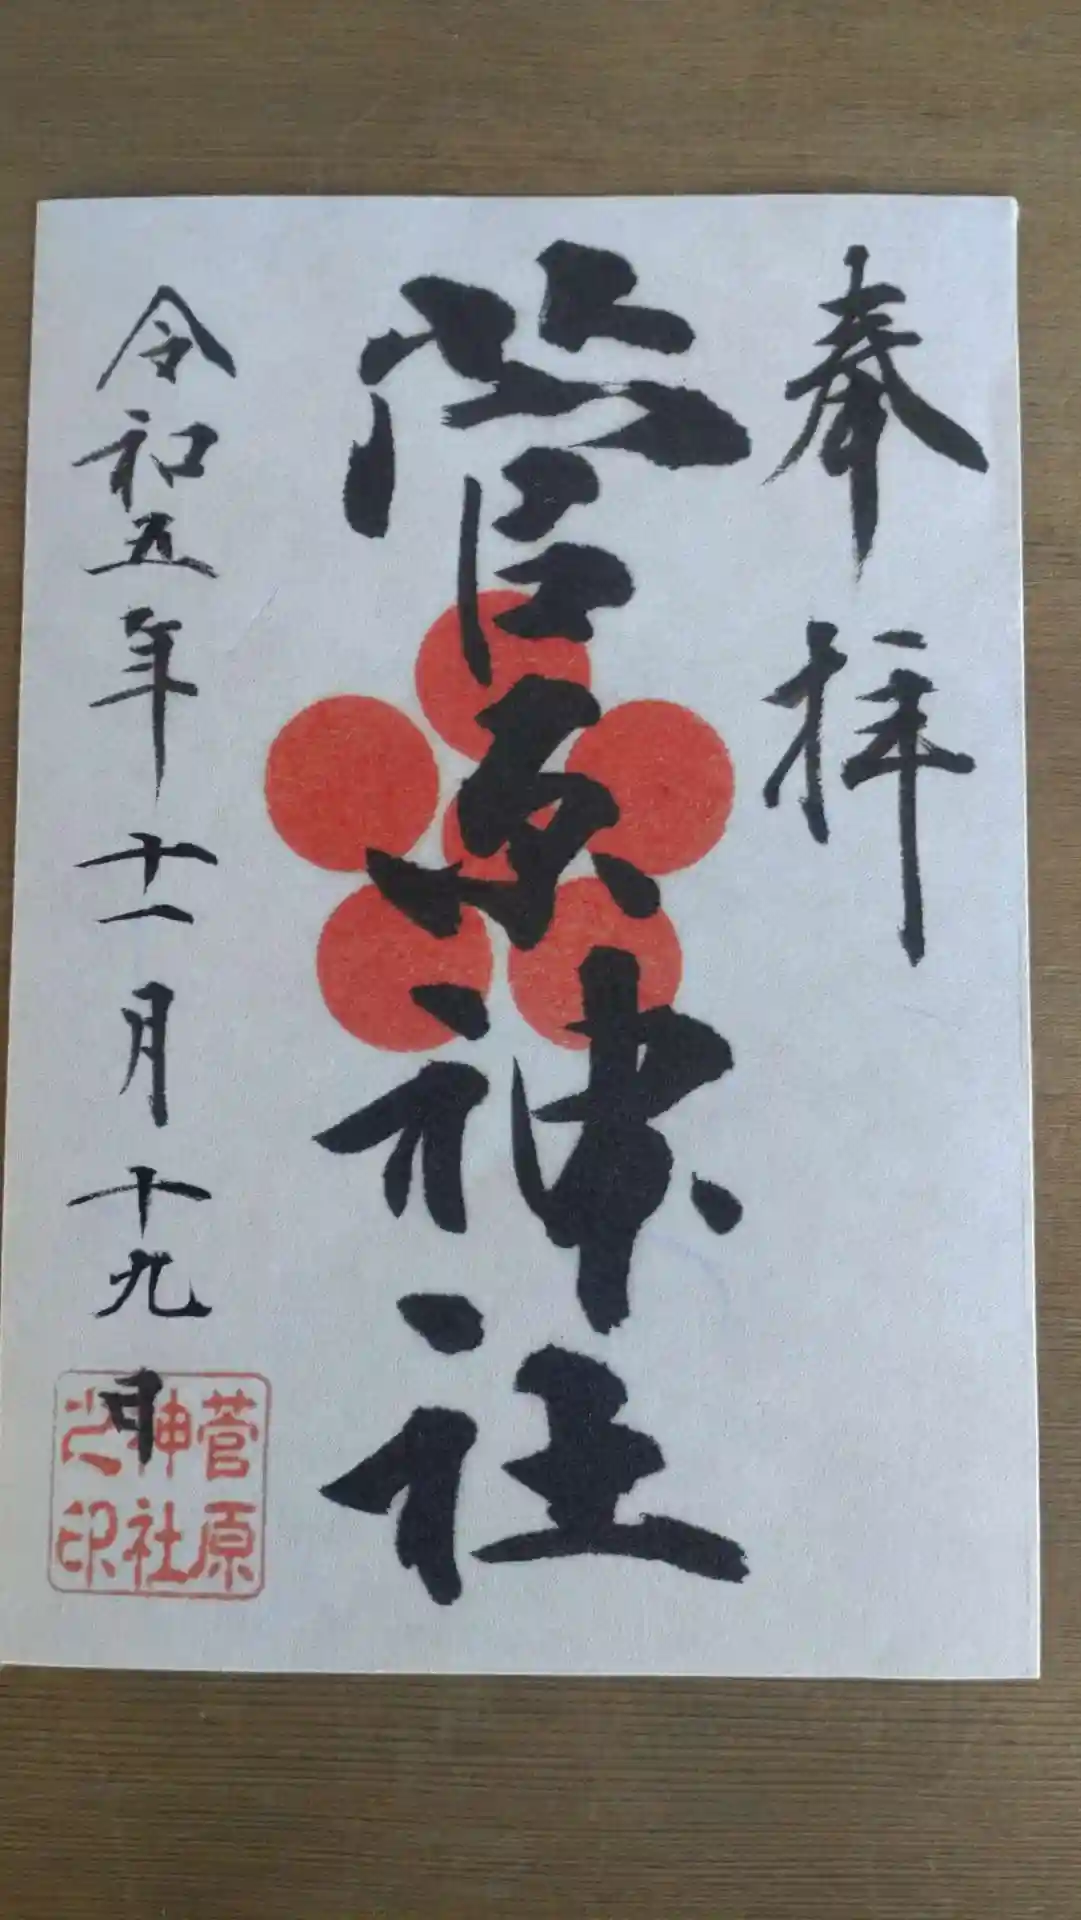 奉拝
菅原神社
令和五年十一月十九日
菅原
神社
之印